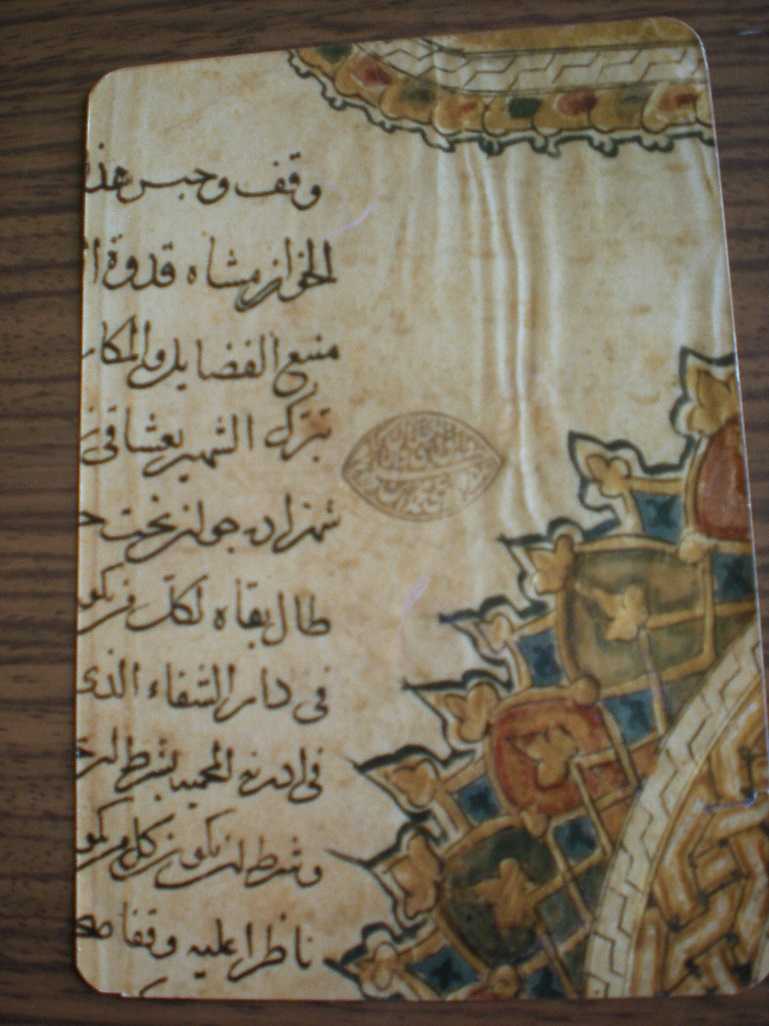 وقف وحبس هذ
الخوارزمشاه قدوة ا
منبع الفضايل والمكار
تبرك الشهير بعشاقي
شهزاده جوانبخت
طال بقاه لكل من يكو
في دار الشفاء الذى
في ادرنه المحميه بشرط ان
وشرط ان يكون كل من يكو
ناظرا عليه وقفا صح